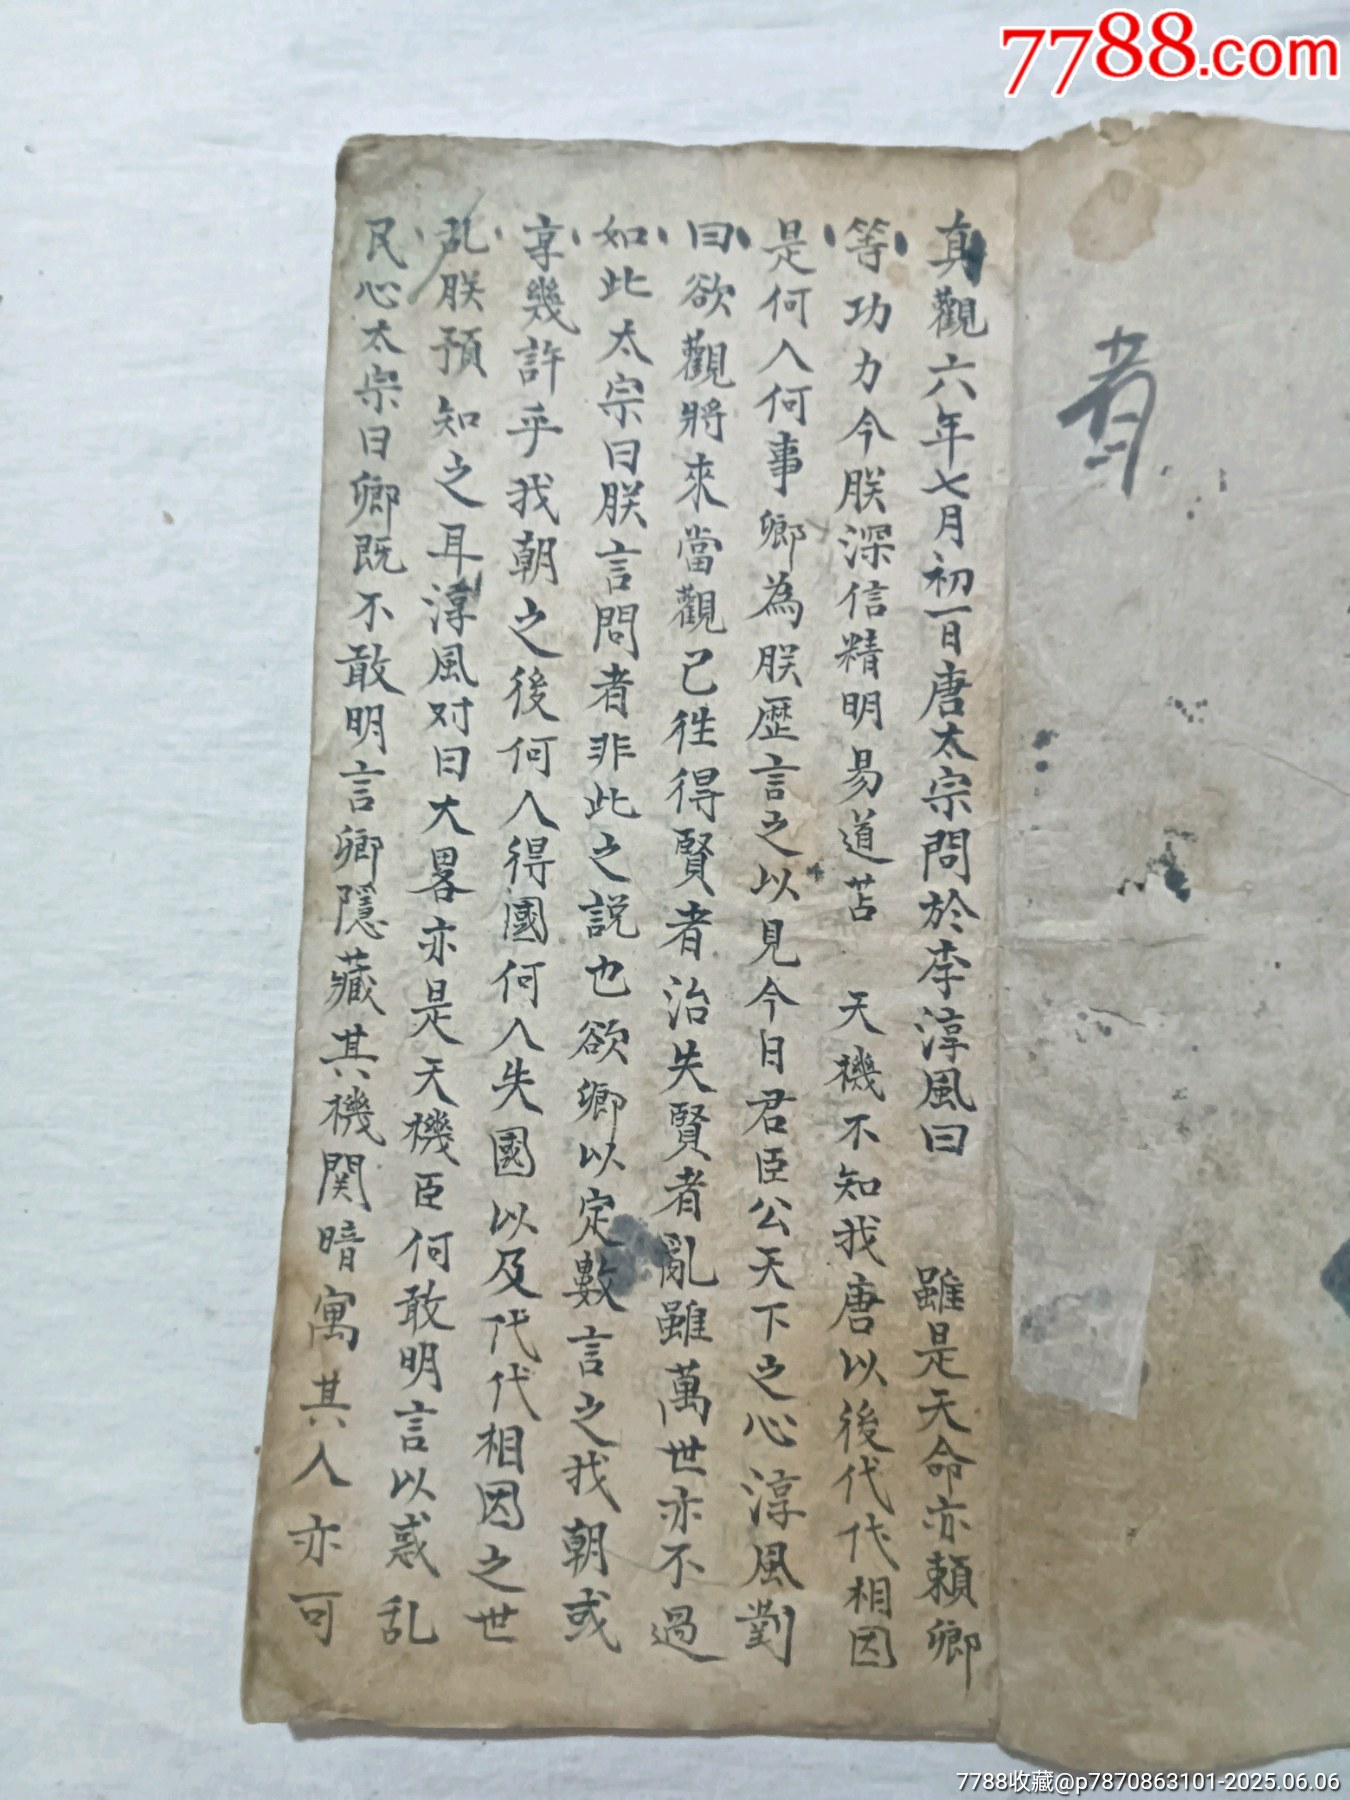 7788.com
者
真觀六年七月初一日唐太宗問於李淳風曰 雖是天命亦頼卿
等功力今朕深信精明易道苫 天機不知我唐以後代代相因
是何人何事卿為朕歴言之以見今日君臣公天下之心淳風對
曰欲觀將來當觀已徃得賢者治失賢者亂雖萬世亦不過
如此太宗曰朕言問者非此之説也欲卿以定數言之我朝或
享幾許乎我朝之後何人得國何人失國以及代代相因之世
乱朕預知之耳淳風对曰大畧亦是天機臣何敢明言以惑乱
民心太宗曰卿既不敢明言卿隱藏其機関暗寓其人亦可
7788收藏@p7870863101-2025.06.06